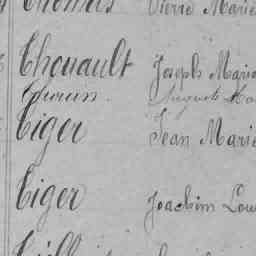 Thomas Pierre Marie
Thouault Joseph Marie
Auguste
Tiger Jean Marie
Tiger Joachim Lou